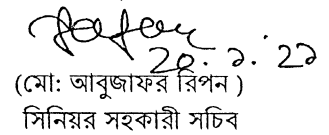 ২০.১.২২
(মো: আবুজাফর রিপন )
সিনিয়র সহকারী সচিব